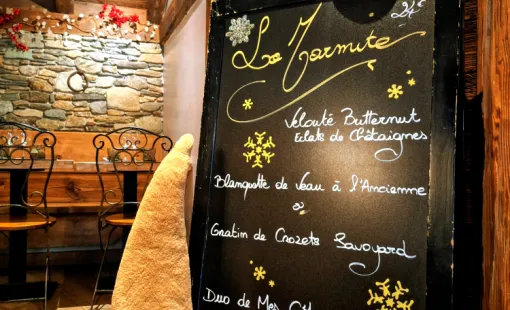 24€
La Marmite
Velouté Butternut
Eclats de Châtaignes
Blanquette de Veau à l'Ancienne
ou
Gratin de Crozets Savoyard
Duo de Mes